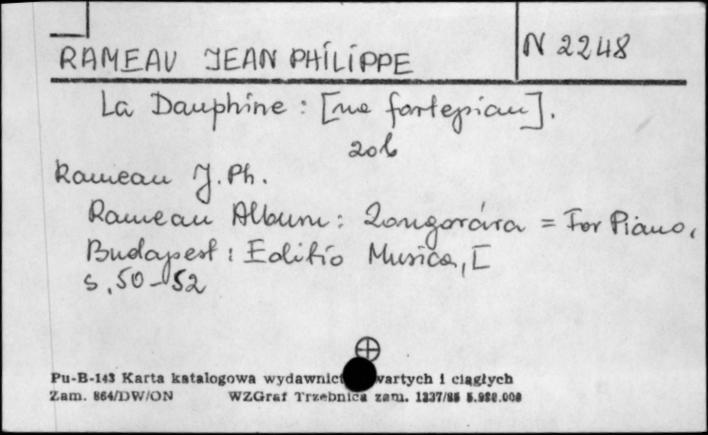 RAMEAU JEAN PHILIPPE
N 2248
La Dauphine : [na fortepian].
Rameau J. Ph.
Rameau Album : Zongorára = For Piano,
Budapest : Editio Musica, [
s. 50-52
Pu-B-143 Karta katalogowa wydawnict wartych i ciągłych
Zam. 864/DW/ON WZGraf Trzebnica zam. 1237/85 5.988.000